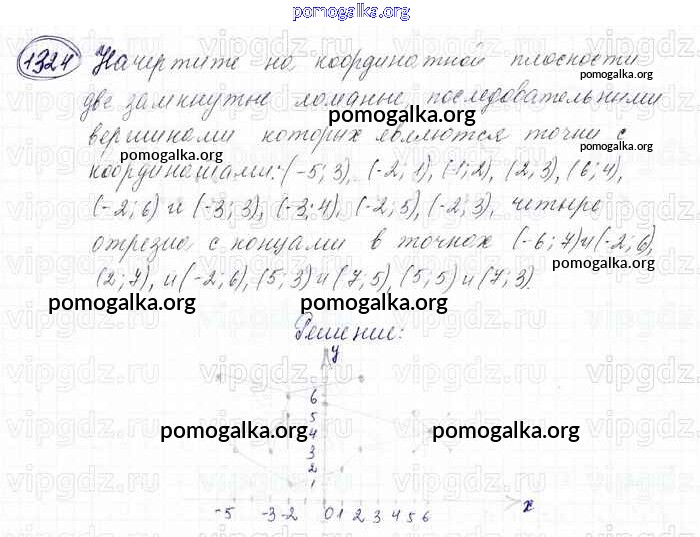 pomogalka.org
1324 Начертите на координатной плоскости
pomogalka.org
две замкнутые ломаные, последовательными
pomogalka.org
вершинами которых являются точки с
pomogalka.org
координатами: (-5; 3), (-2; 1), (1; 2), (2, 3), (6; 4),
pomogalka.org
(-2; 6) и (-3; 3), (-3; 4), (-2; 5), (-2; 3), четыре
отрезка с концами в точках (-6; 7) и (-2; 6),
pomogalka.org
(2; 7), и (-2; 6), (5; 3) и (7, 5), (5; 5) и (7; 3).
pomogalka.org
pomogalka.org
Решение:
y
pomogalka.org
6
5
4
3
2
1
pomogalka.org
pomogalka.org
-5 -3 -2 0 1 2 3 4 5 6 x
pomogalka.org
vipgdz.ru